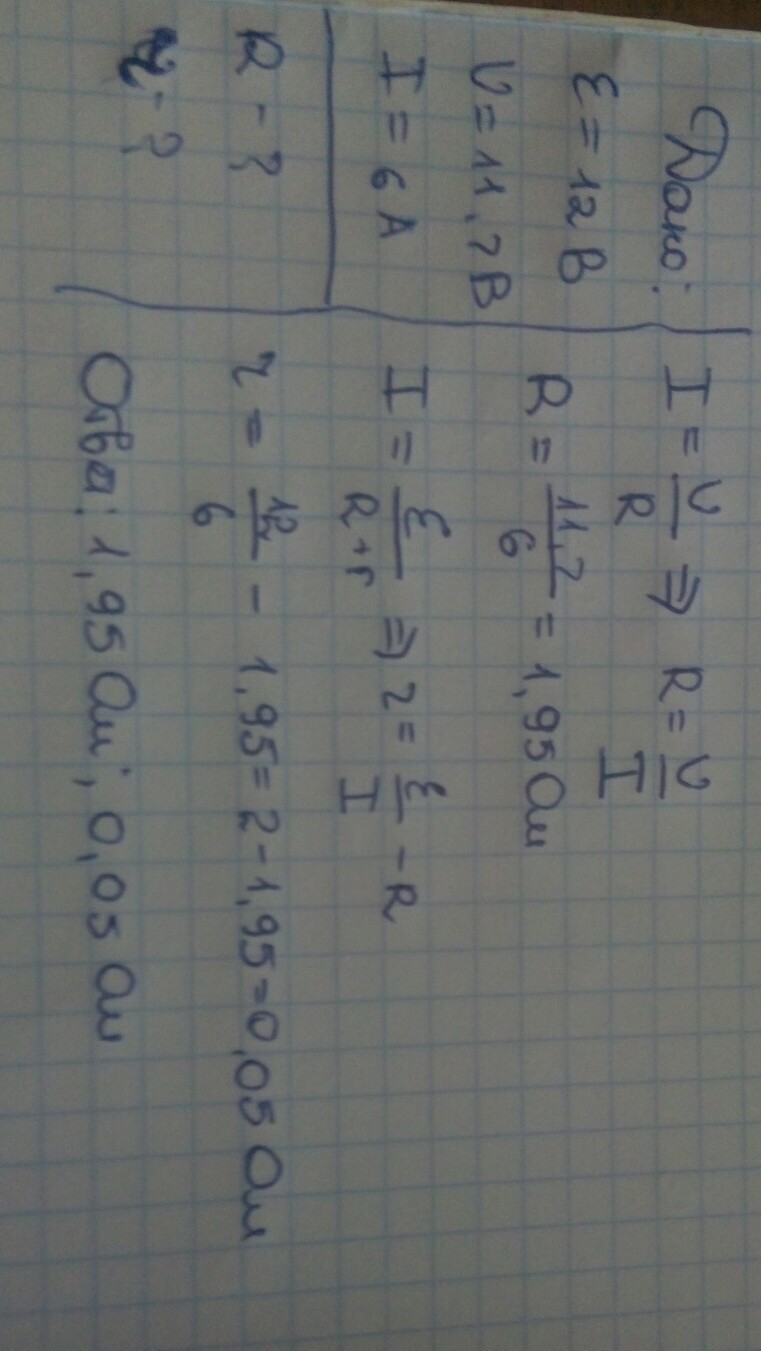 Дано:
ε = 12 В
U = 11,7 В
I = 6 А
R - ?
r - ?
I = U/R ⇒ R = U/I
R = 11,7/6 = 1,95 Ом
I = ε/(R+r) ⇒ r = ε/I - R
r = 12/6 - 1,95 = 2 - 1,95 = 0,05 Ом
Ответ: 1,95 Ом; 0,05 Ом